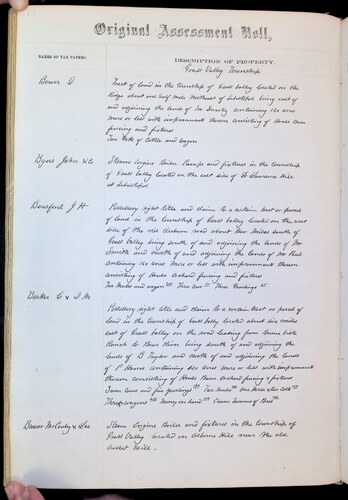 Original Assessment Roll,
NAMES OF TAX PAYERS
DESCRIPTION OF PROPERTY.
Grass Valley Township
Bower D
Tract of land in the township of Grass Valley located on the
Ridge about one half mile Northeast of being east of
and adjoining the lands of containing 160 acres
more or less with improvements thereon consisting of House Barn
fencing and fixtures
Two Yoke of cattle and wagon
Byers John & Co
Steam Engine Boiler Pumps and fixtures in the township
of Grass Valley located on the east side of St Lawrence Hill
at
Beresford J H
Possessory right title and claim to a certain tract or parcel
of land in the township of Grass Valley located on the west
side of the old Auburn road about two Miles south of
Grass Valley being south of and adjoining the lands of Mr
Smith and north of and adjoining the lands of Mr
containing 160 acres more or less with improvements thereon
consisting of House orchard fencing and fixtures
Two Mules and wagon Three Cows Three
Barker C & S M
Possessory right title and claim to a certain tract or parcel of
land in the township of Grass Valley located about six miles
east of Grass Valley on the road leading from Buena Vista
Ranch to Bear River being south of and adjoining the
lands of B Taylor and north of and adjoining the lands
of P containing 320 acres more or less with improvements
thereon consisting of House Barn orchard fencing & fixtures
Seven Cows and five yearlings Two Mules One Horse
Three wagons Money on hand Swarms of Bees
McCauley & Lee
Steam Engine Boiler and fixtures in the township of
Grass Valley located on Osborne Hill near the old
Mill